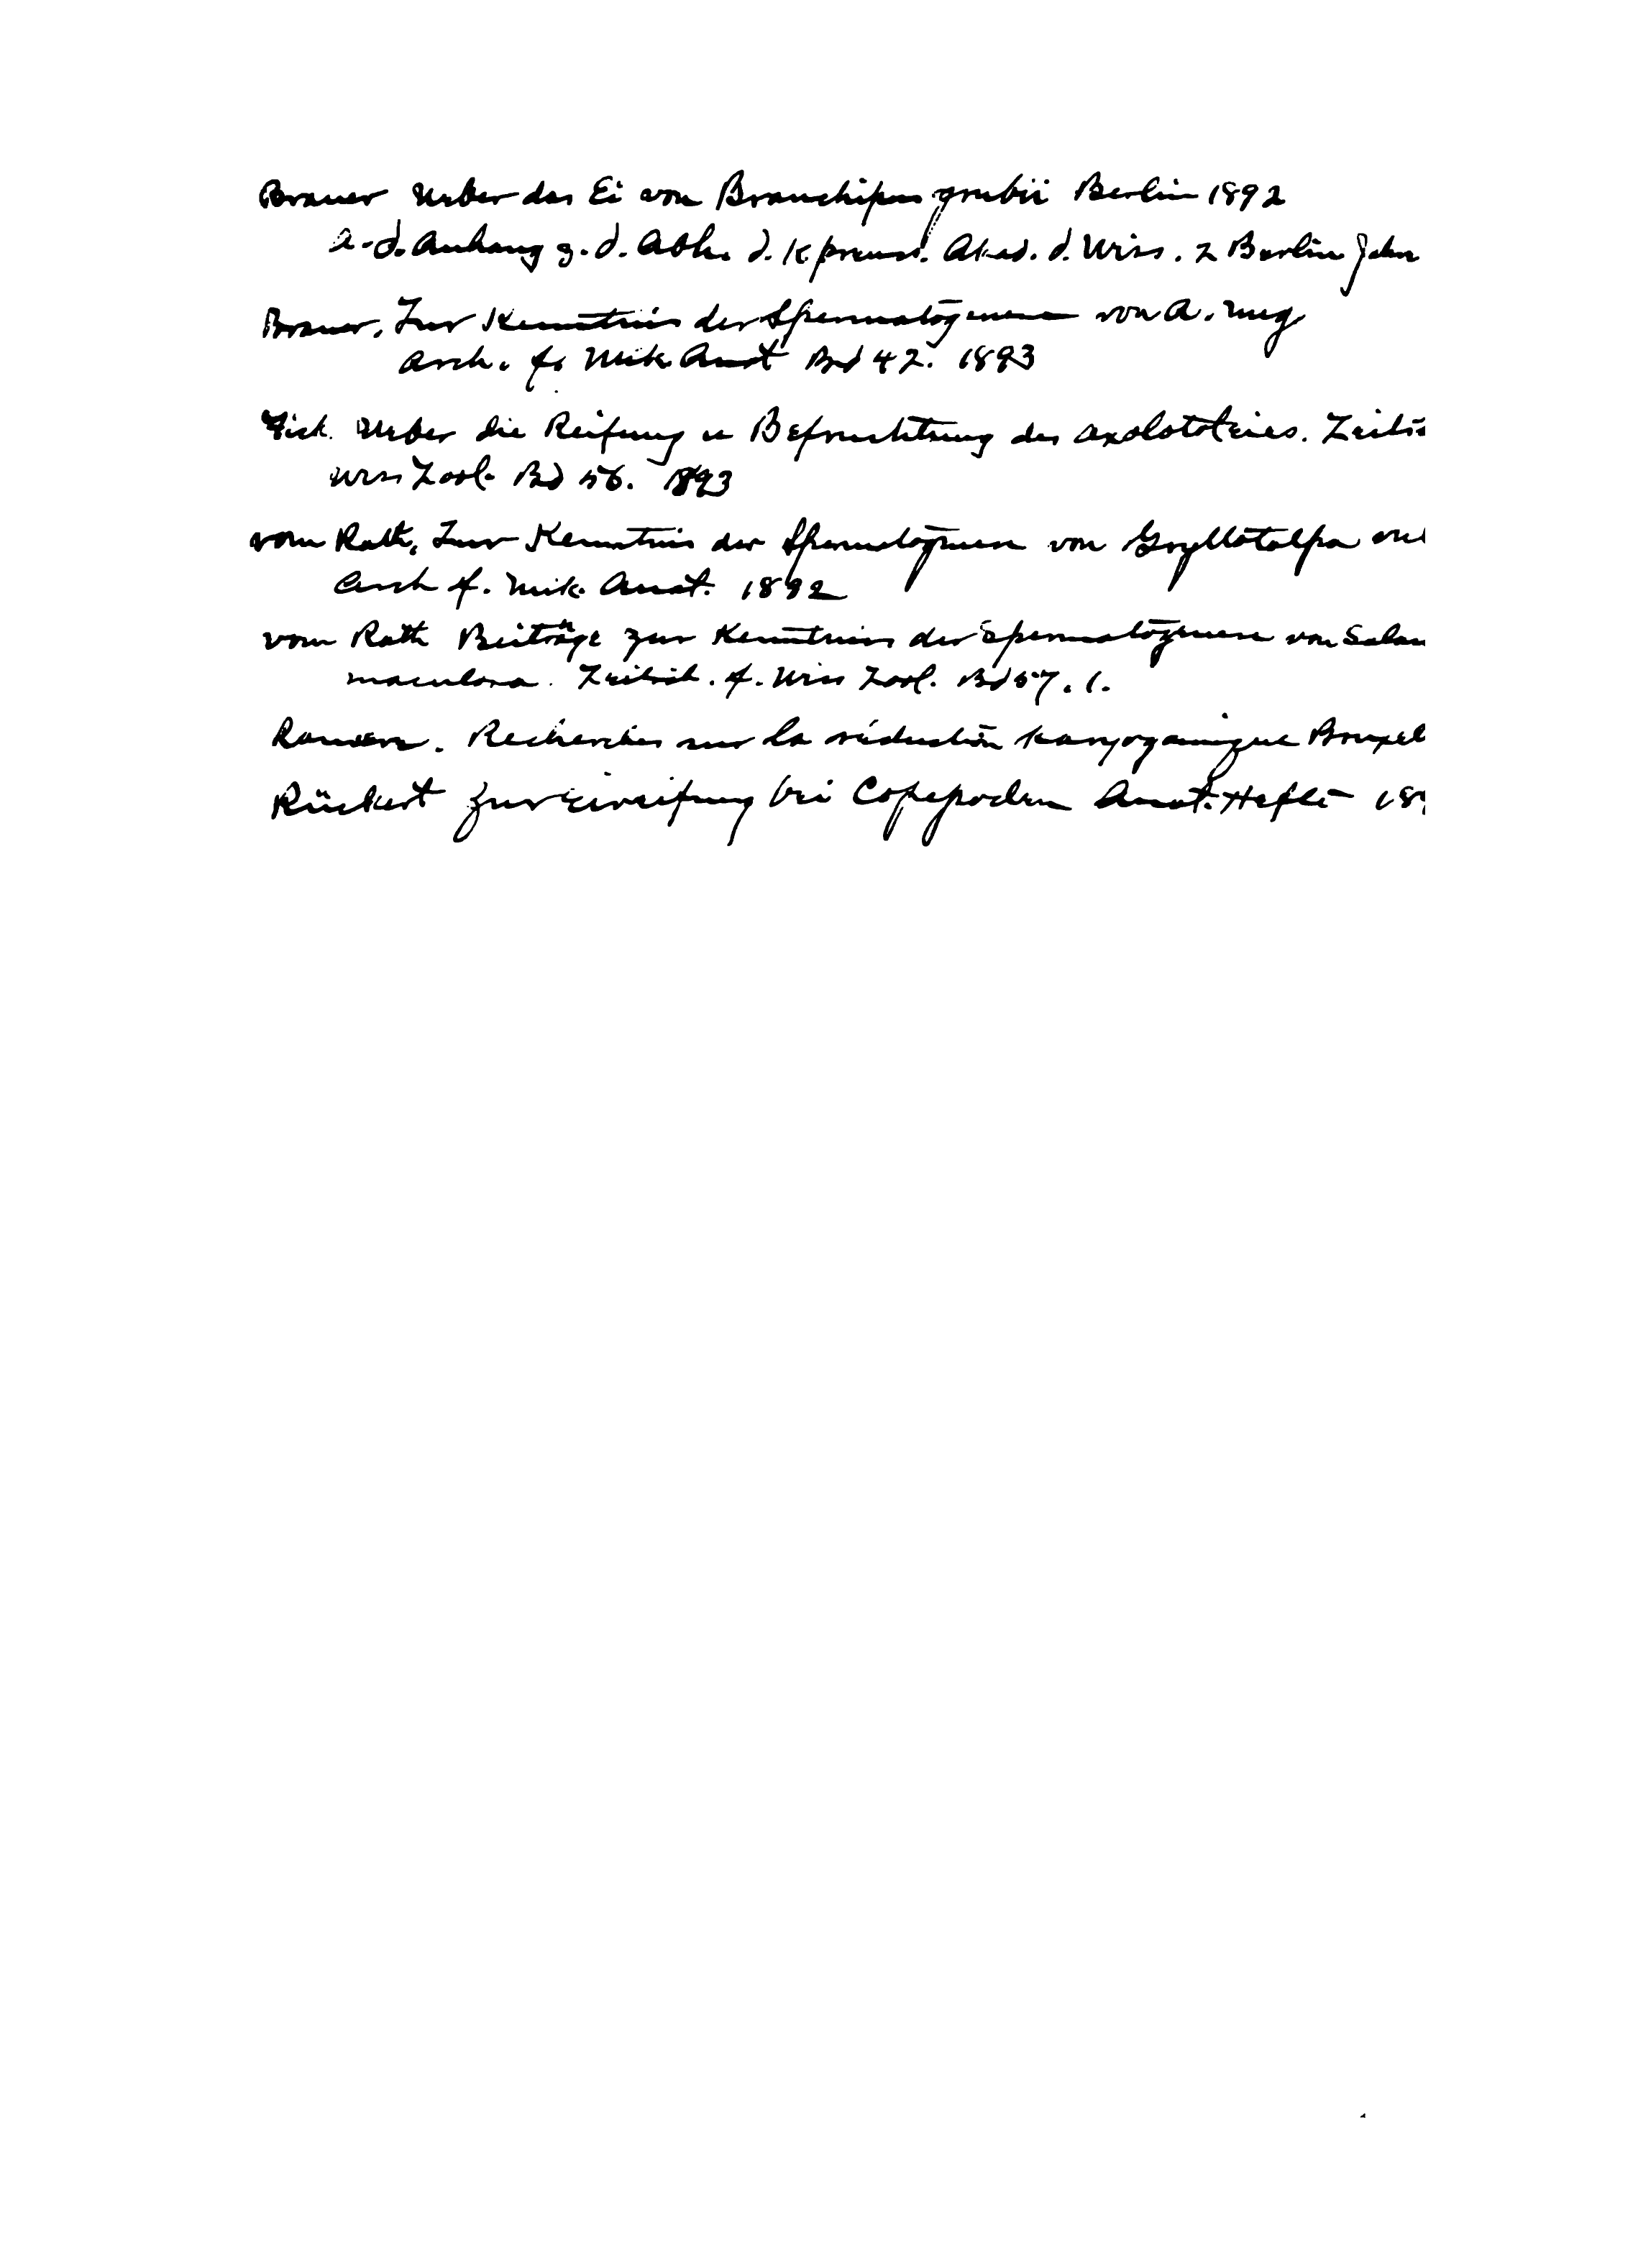 Brauer Ueber das Ei von Branchipus grubii Berlin 1892
a. d. Anhang z. d. Abh. d. K. preuss. Akad. d. Wiss. z Berlin Jahr
Brauer, Zur Kenntnis der Spermatogenese von A. meg.
Arch. f. Mik. Anat Bd 42. 1893
Fick. Ueber die Reifung u Befruchtung des Axolototeies. Zeits
Wiss Zool. Bd 56. 1893
vom Rath, Zur Kenntnis der Spermatogenese von Gryllotalpa vul
Arch f. Mik. Anat. 1892
vom Rath Beiträge zur Kenntniss der Spermatogenese von Salam
maculosa. Zeitsch. f. Wiss Zool. Bd 57. 1.
Recherches sur la réduction karyogamique Bruxel
Rückert Zur Eireifung bei Copepoden Anat. Hefte 189